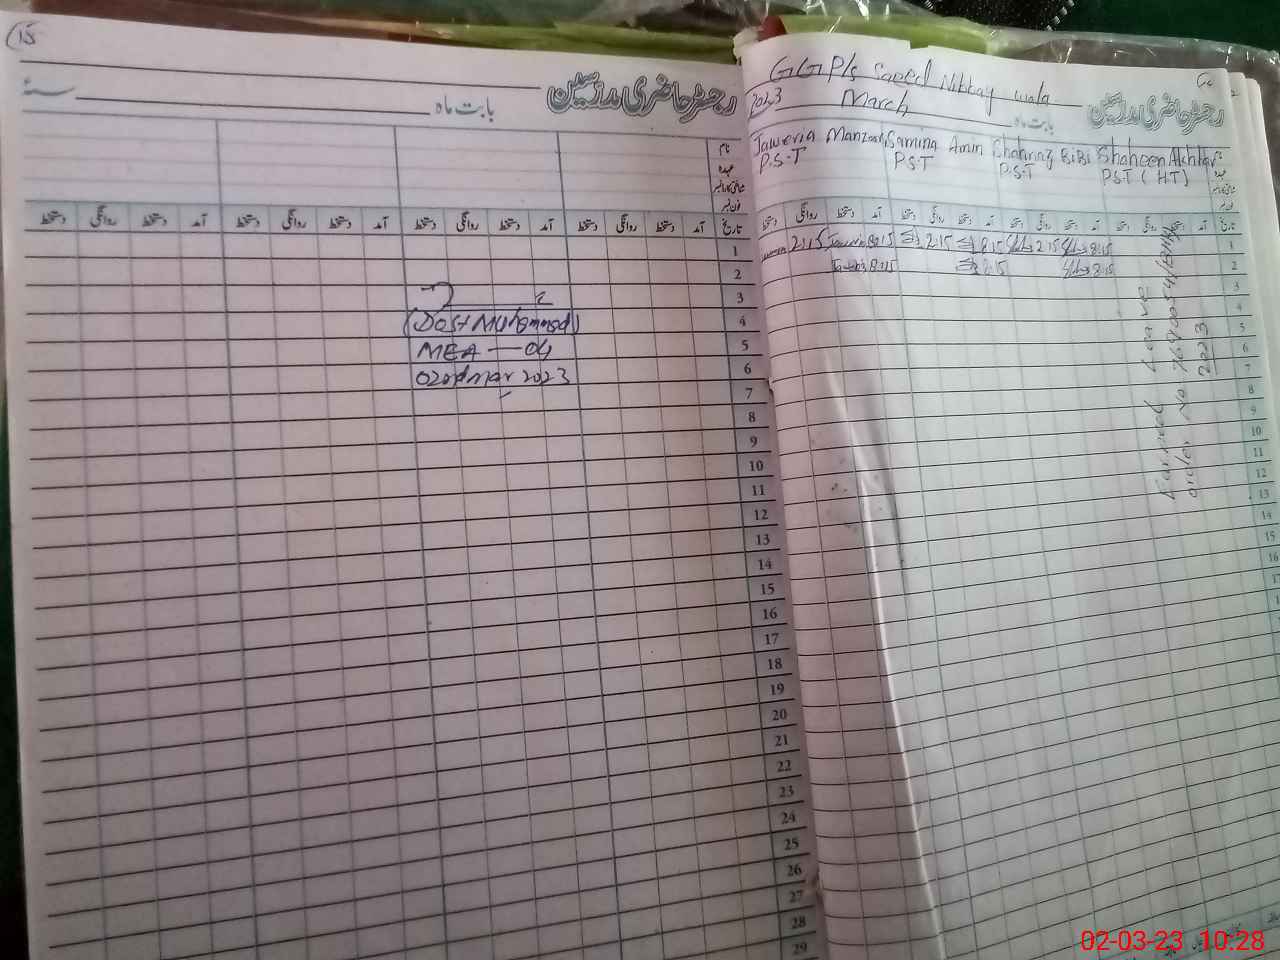 15
رجسٹر حاضری مدرسین
بابت ماہ سنہ
نام
عہدہ
تاریخ آمد دستخط روانگی دستخط آمد دستخط روانگی دستخط آمد دستخط روانگی دستخط آمد دستخط روانگی دستخط
1
2
3
(Dost Muhammad) 4
MEA — 04 5
02nd Mar 2023 6
7
8
9
10
11
12
13
14
15
16
17
18
19
20
21
22
23
24
25
26
27
28
29
GGP/s Saeed Nibbay wala
رجسٹر حاضری مدرسین
2023 March بابت ماہ
Jaweria Manzoor Samina Amin Shahnaz BiBi Shaheen Akhtar نام
P.S.T P.S.T P.S.T PST (HT) عہدہ
تاریخ آمد دستخط روانگی دستخط آمد دستخط روانگی دستخط آمد دستخط روانگی دستخط آمد دستخط روانگی دستخط
2:15 8:15 2:15 8:15 2:15 8:15 1
8:15 8:15 8:15 2
3
4
5
6
7
8
9
10
11
12
13
14
15
16
17
Leave
order No
2023
02-03-23 10:28